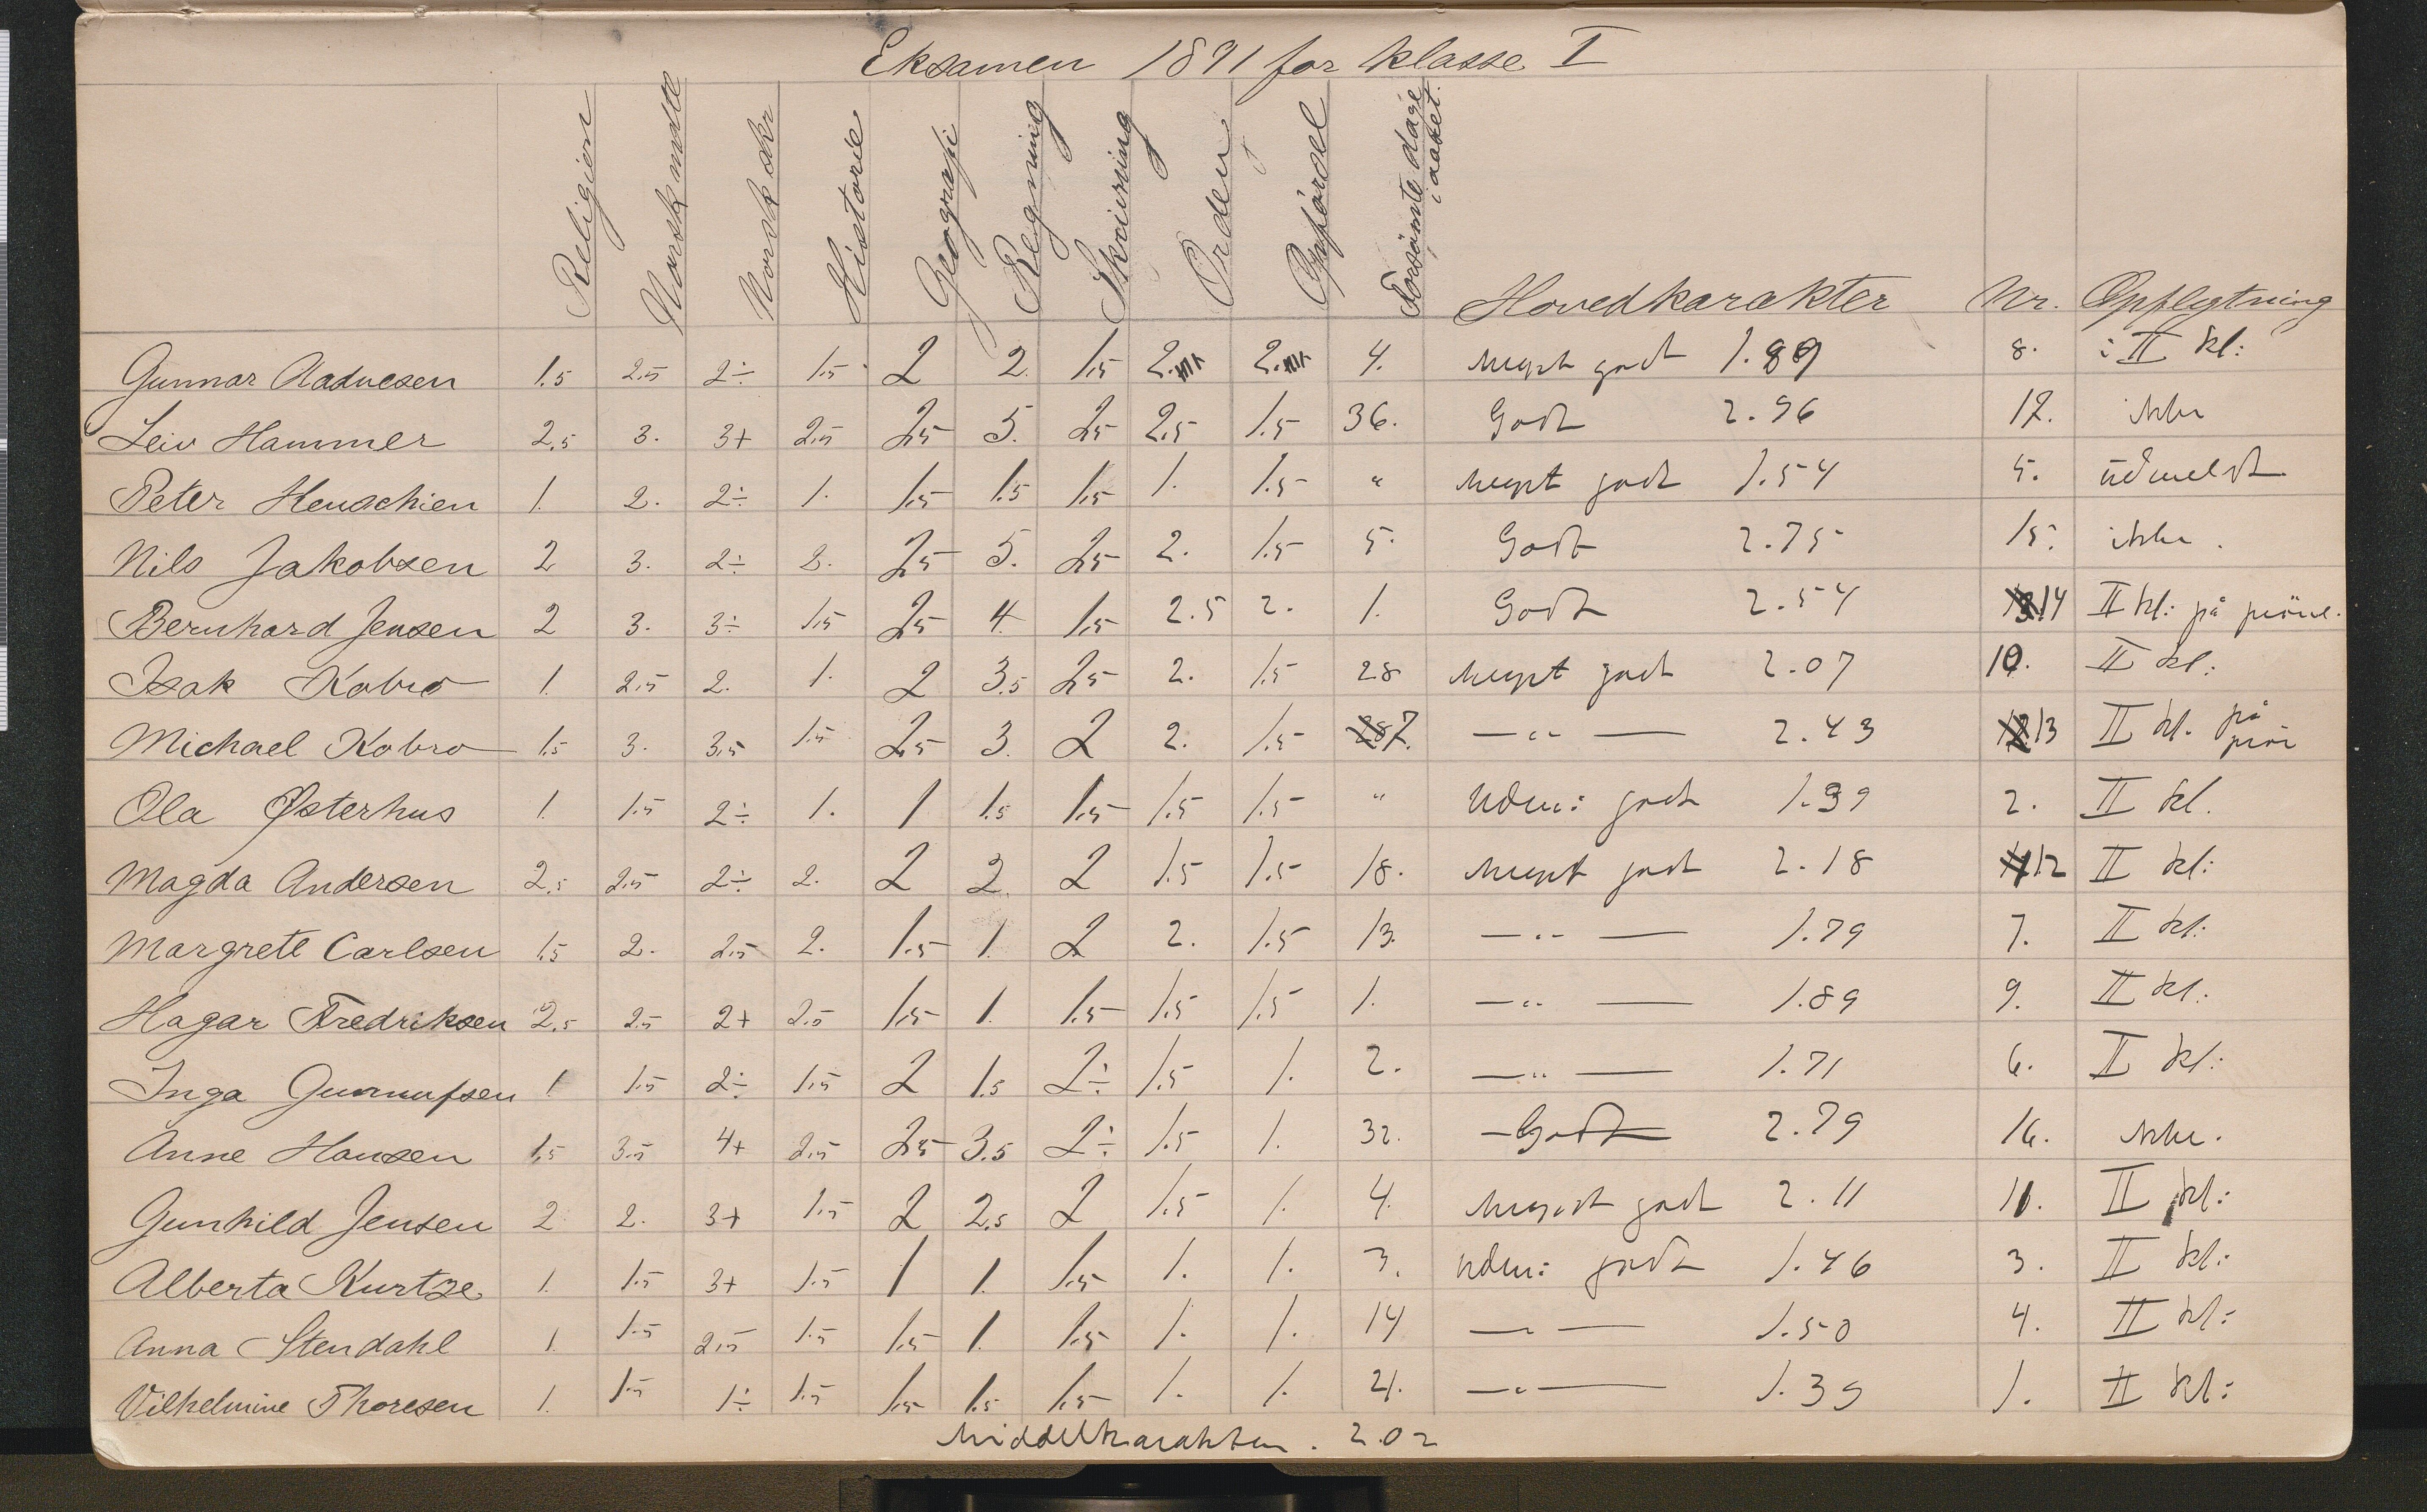 Eksamen 1891 for klasse I
Religion Norsk mndtl Norsk skr Historie Geografi Regning Skrivning Orden Opförsel Forsömte dage i aaret. Hovedkarakter Nr. Opflytning
Gunnar Aadnesen 1.5 2.5 2÷ 1.5 2 2. 1.5 2. 2. 4. meget godt 1.89 8. i II kl:
Leiv Hammer 2.5 3. 3+ 2.5 2.5 5. 2.5 2.5 1.5 36. Godt 2.96 17. ikke
Peter Henschien 1. 2. 2÷ 1. 1.5 1.5 1.5 1. 1.5 " meget godt 1.54 5. udmeldt
Nils Jakobsen 2 3. 2÷ 2. 2.5 5. 2.5 2. 1.5 5. Godt 2.75 15. ikke.
Bernhard Jensen 2 3. 3÷ 1.5 2.5 4. 1.5 2.5 2. 1. Godt 2.54 14 II kl: på pröve.
Isak Kobro 1. 2.5 2. 1. 2 3.5 2.5 2. 1.5 28 meget godt 2.07 10. II kl:
Michael Kobro 1.5 3. 3.5 1.5 2.5 3. 2 2. 1.5 7. — " — 2.43 13 II kl. på prör
Ola Østerhus 1. 1.5 2÷ 1. 1 1.5 1.5 1.5 1.5 " Udm: godt 1.39 2. II kl.
Magda Andersen 2.5 2.5 2÷ 2. 2 2. 2 1.5 1.5 18. meget godt 2.18 12 II kl:
Margrete Carlsen 1.5 2. 2.5 2. 1.5 1. 2 2. 1.5 13. — " — 1.79 7. II kl:
Hagar Fredriksen 2.5 2.5 2+ 2.5 1.5 1. 1.5 1.5 1.5 1. — " — 1.89 9. II kl:
Inga Gunnufsen 1 1.5 2÷ 1.5 2 1.5 2÷ 1.5 1. 2. — " — 1.71 6. II kl:
Anne Hansen 1.5 3.5 4+ 2.5 2.5 3.5 2÷ 1.5 1. 32. Godt 2.79 16. ikke.
Gunhild Jensen 2 2. 3+ 1.5 2 2.5 2 1.5 1. 4. meget godt 2.11 11. II kl:
Alberta Kurtze 1. 1.5 3+ 1.5 1 1. 1.5 1. 1. 3. Udm: godt 1.46 3. II kl:
Anna Stendahl 1. 1.5 2.5 1.5 1.5 1. 1.5 1. 1. 14 — " — 1.50 4. II kl:
Vilhelmine Thoresen 1. 1.5 1÷ 1.5 1.5 1.5 1.5 1. 1. 21. — " — 1.39 1. II kl:
Middelkarakter. 2.02